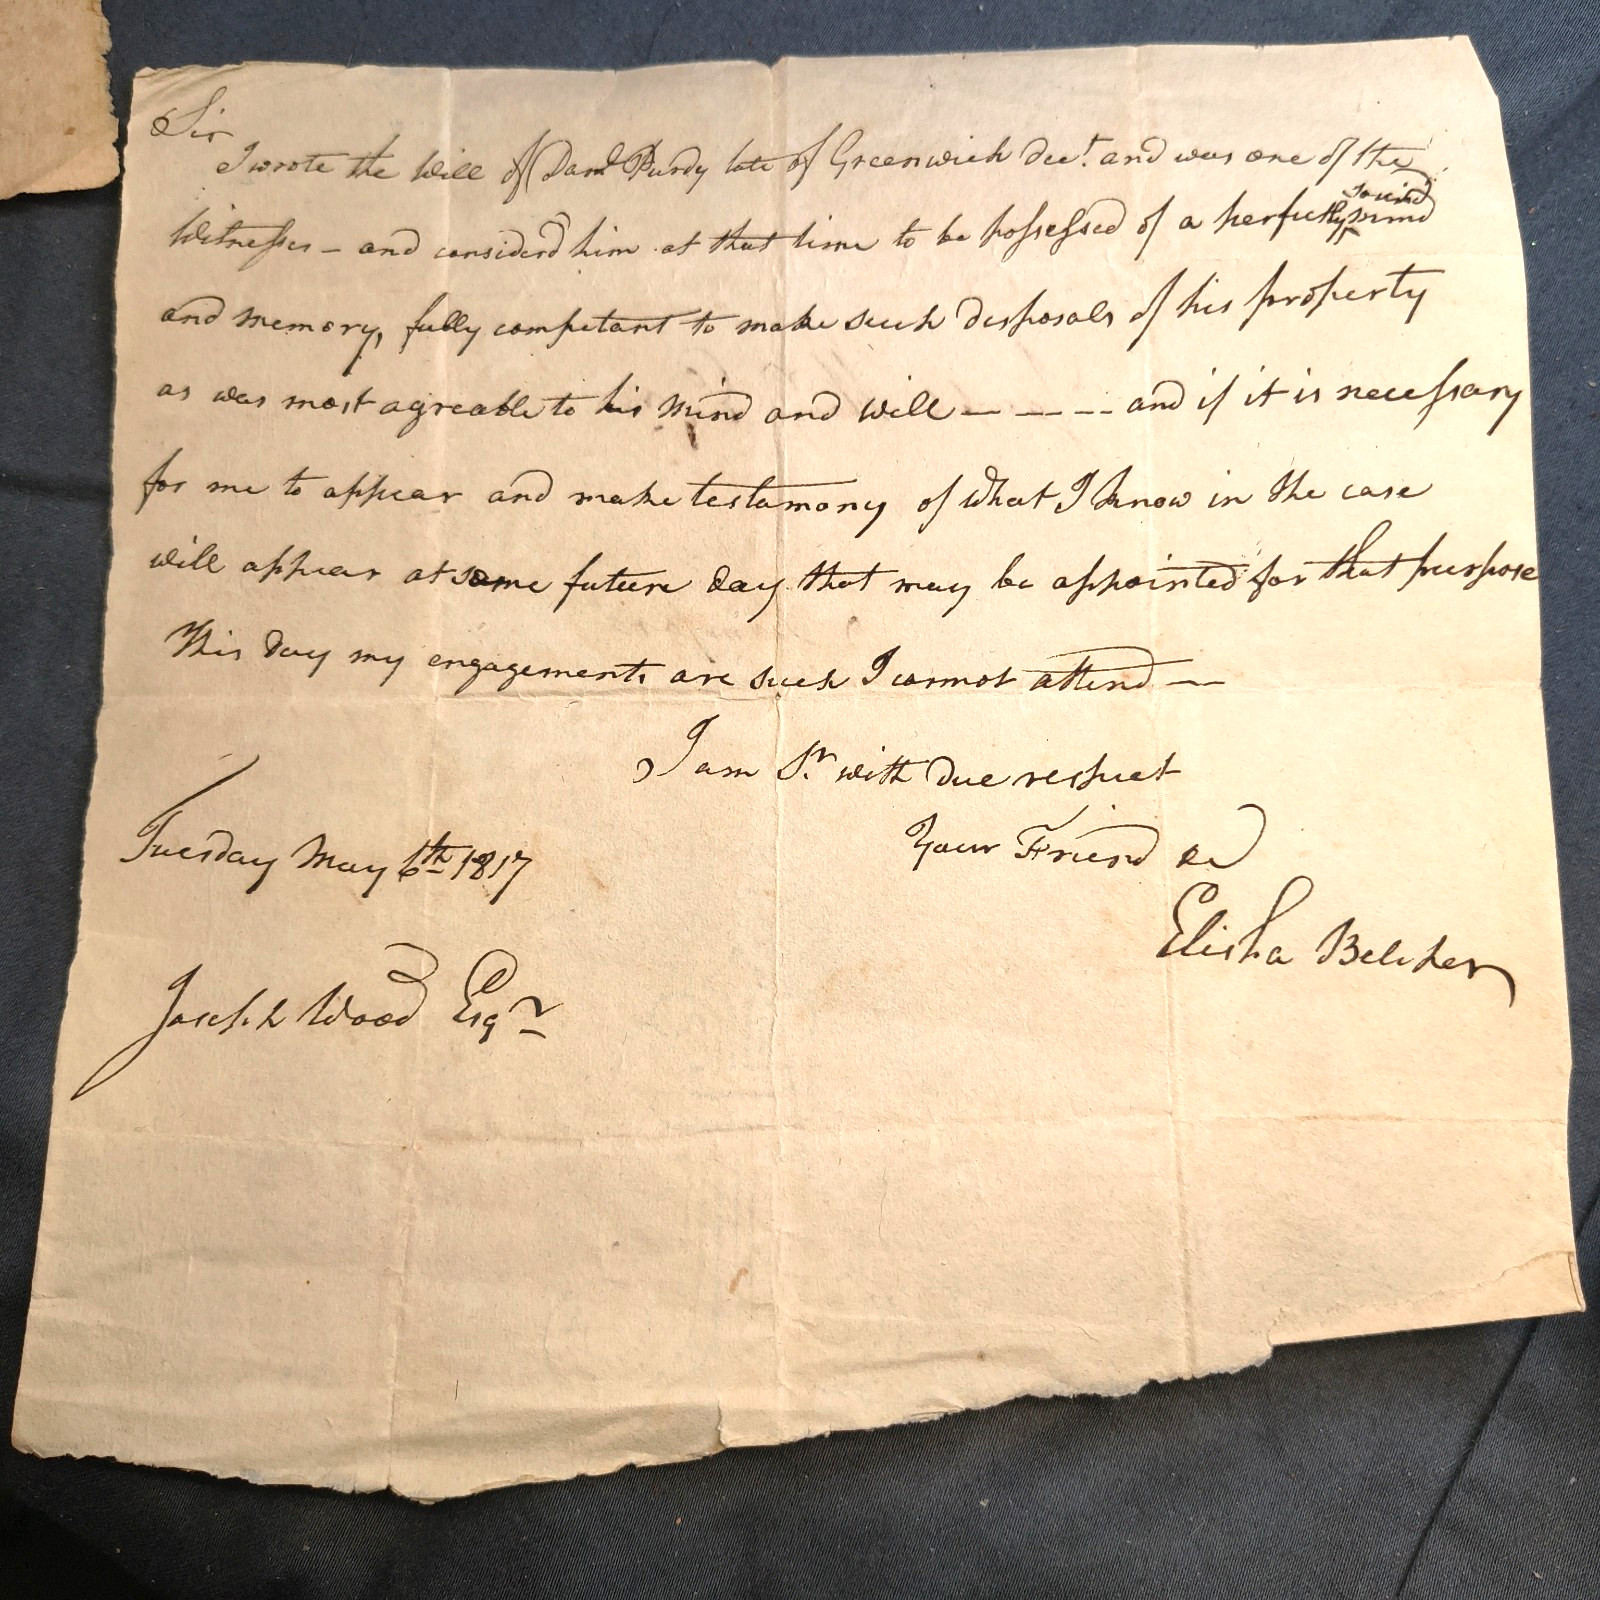 Sir
I wrote the Will of Danl Purdy late of Greenwich Dect. and was one of the
Witnesses – and considerd him at that time to be possessed of a perfectly sound mind
and memory, fully competant to make such disposals of his property
as was most agreable to his mind and will – – – – and if it is necessary
for me to appear and make testamony of what I know in the case
will appear at some future day that may be appointed for that purpose
This day my engagements are such I cannot attend —
I am Sr. with due respect
Your Friend &c
Tuesday May 6th 1817
Elisha Belcher
Joseph Wood Esqr